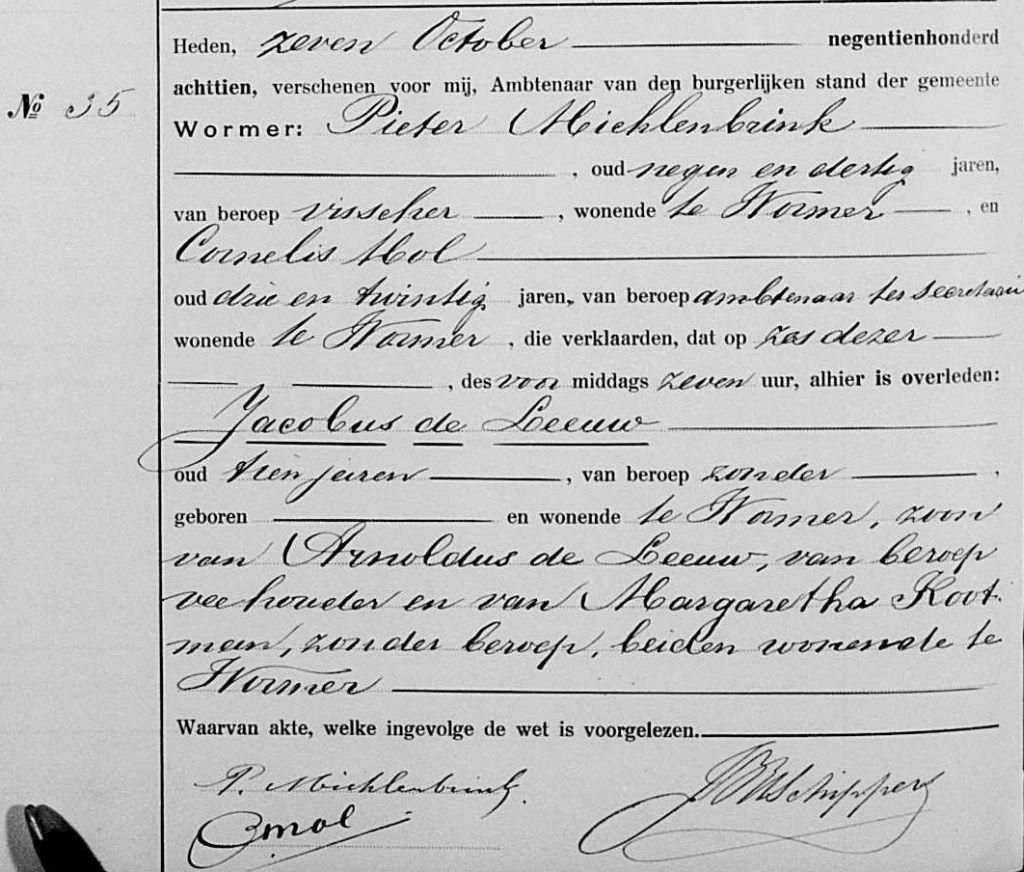 Heden, zeven October negentienhonderd
achttien, verschenen voor mij, Ambtenaar van den burgerlijken stand der gemeente
No 35
Wormer: Pieter Michlenbrink
, oud negen en dertig jaren,
van beroep visscher , wonende te Wormer , en
Cornelis Mol
oud drie en twintig jaren, van beroep ambtenaar ter secretarie
wonende te Wormer , die verklaarden, dat op zes dezer
, des voor middags zeven uur, alhier is overleden:
Jacobus de Leeuw
oud tien jaren , van beroep zonder ,
geboren en wonende te Wormer, zoon
van Arnoldus de Leeuw, van beroep
veehouder en van Margaretha Koot-
man, zonder beroep, beiden wonende te
Wormer
Waarvan akte, welke ingevolge de wet is voorgelezen.
P. Michlenbrink.
C mol
Schippers